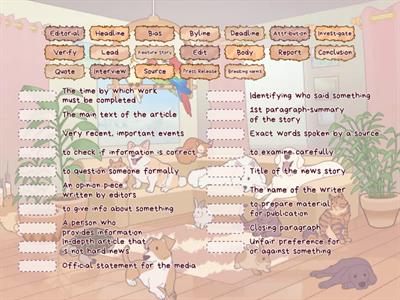 Editorial
Headline
Bias
Byline
Deadline
Attribution
Investigate
Verify
Lead
Feature story
Edit
Body
Report
Conclusion
Quote
Interview
Source
Press Release
Breaking news
The time by which work
must be completed
The main text of the article
Very recent, important events
to check if information is correct
to question someone formally
An opinion piece
written by editors
to give info about something
A person who
provides information
In-depth article that
is not hard news?
Official statement for the media
Identifying who said something
1st paragraph-summary
of the story
Exact words spoken by a source
to examine carefully
Title of the news story
The name of the writer
to prepare material
for publication
Closing paragraph
Unfair preference for
or against something